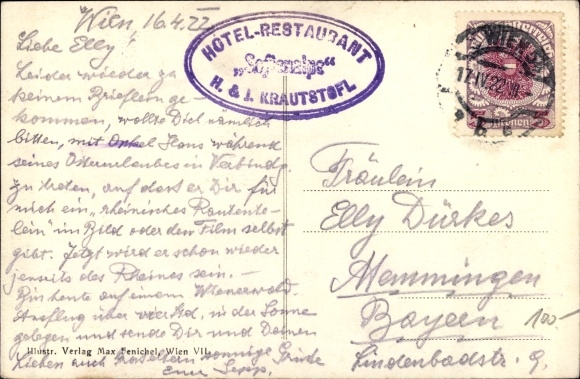 Wien, 16.4.22
Liebe Elly!
Leider wieder zu
keinem Brieflein ge-
kommen, wollte Dich nämlich
bitten, mit Onkel Hans während
seines Osterurlaubes in Verbindg.
zu treten, auf dass er Dir für
mich ein „rheinisches
lein" im Bild oder den Film selbst
gibt. Jetzt wird er schon wieder
jenseits des Rheines sein. –
Bin heute auf einem Wienerwald-
Ausflug über in der Sonne
gelegen und sende Dir und Deinen
Lieben auch sonnige Grüße
Euer Sepp.
HOTEL-RESTAURANT
„Sofienalpe"
H. & J. KRAUTSTOFL
WIEN
17.IV.22
Fräulein
Elly Dürkes
Memmingen
Bayern
Lindenbadstr. 9.
100.-
Illustr. Verlag Max Fenichel, Wien VII.